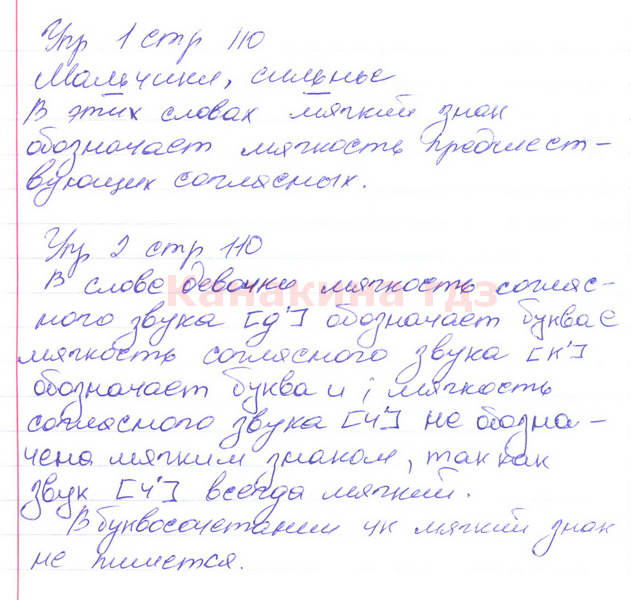 Упр 1 стр 110
Мальчики, сильные
В этих словах мягкий знак
обозначает мягкость предшест-
вующих согласных.
Упр 2 стр 110
В слове девочки мягкость соглас-
ного звука [д'] обозначает буква е
мягкость согласного звука [к']
обозначает буква и, мягкость
согласного звука [ч'] не обозна-
чена мягким знаком, так как
звук [ч'] всегда мягкий.
В буквосочетании чк мягкий знак
не пишется.
Канакина гдз